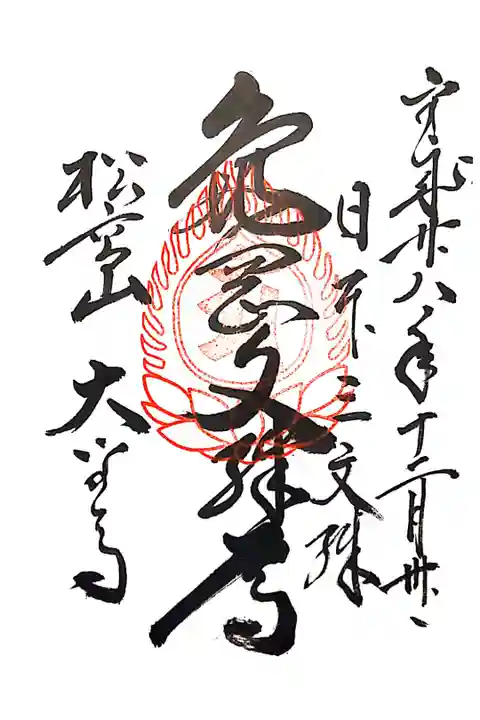 平成廿八年十二月卅一
日本三文殊
亀岡文殊
松高山
大聖寺